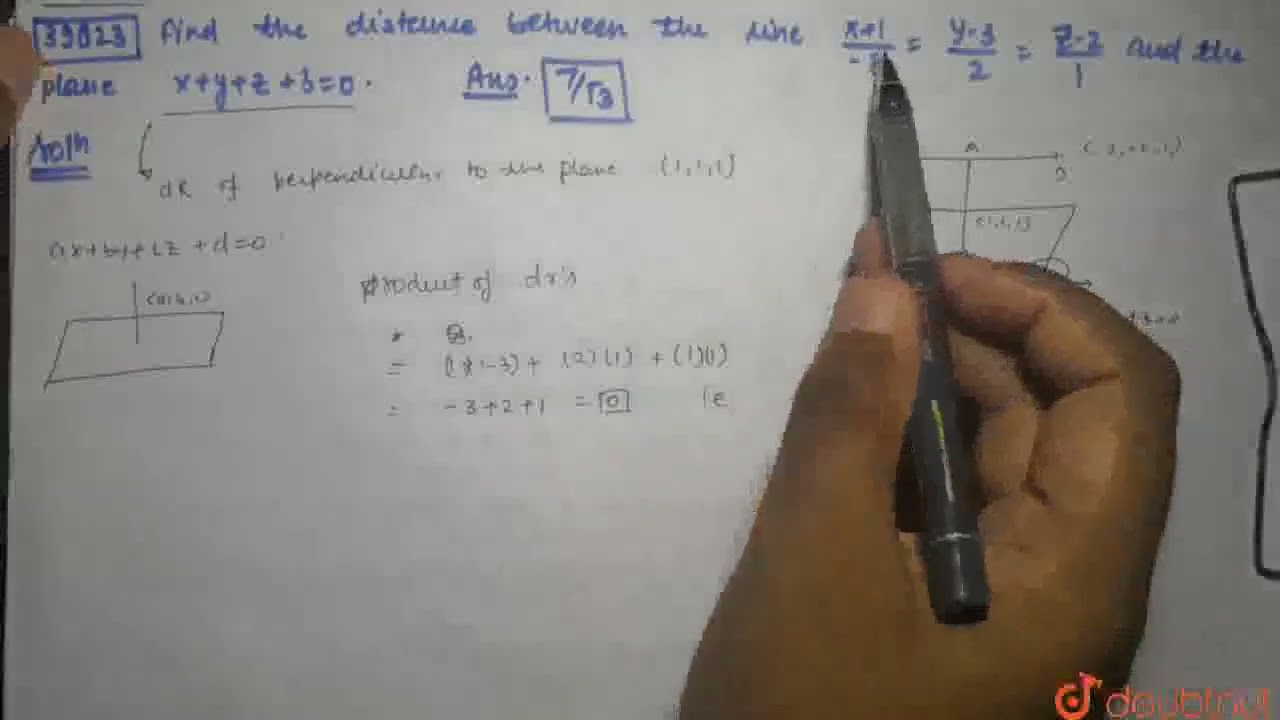 39023 Find the distance between the line x+1/-3 = y-3/2 = z-2/1 and the
plane x+y+z+3=0. Ans. 7/√3
Soln
dR of perpendicular to the plane (1,1,1)
ax+by+cz+d=0
(a,b,c)
product of dr's
= (1)(-3) + (2)(1) + (1)(1)
= -3+2+1 = 0 i.e
A
(-3,+2,1)
(1,1,1)
doubtnut